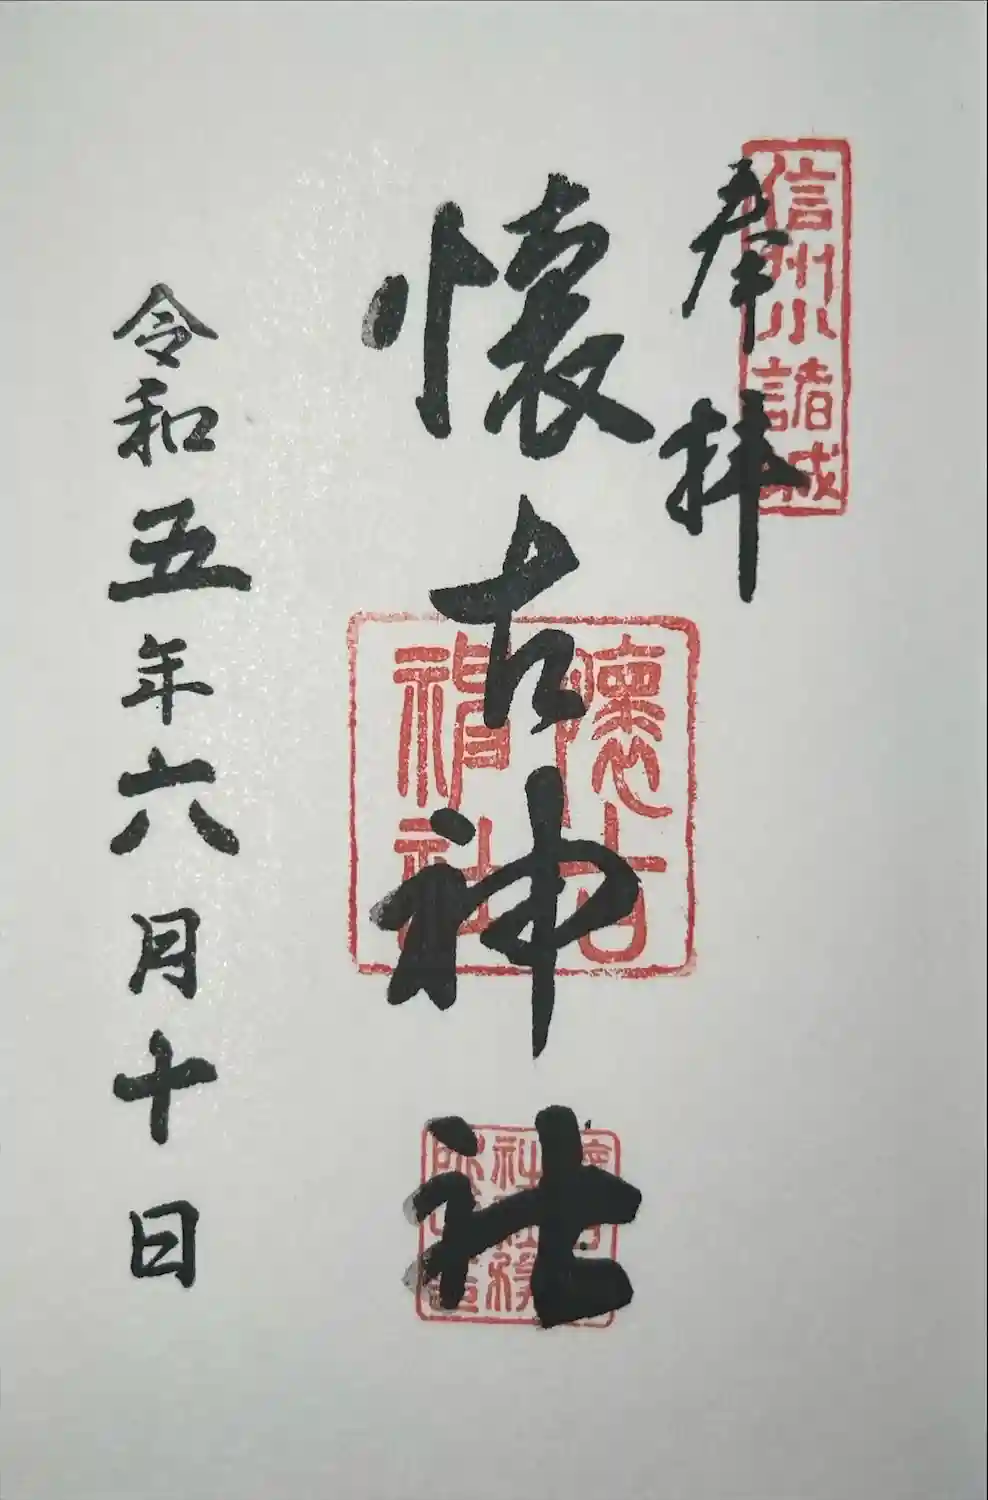 信州小諸城
奉拝
懐古神社
懐古
神社
令和五年六月十日